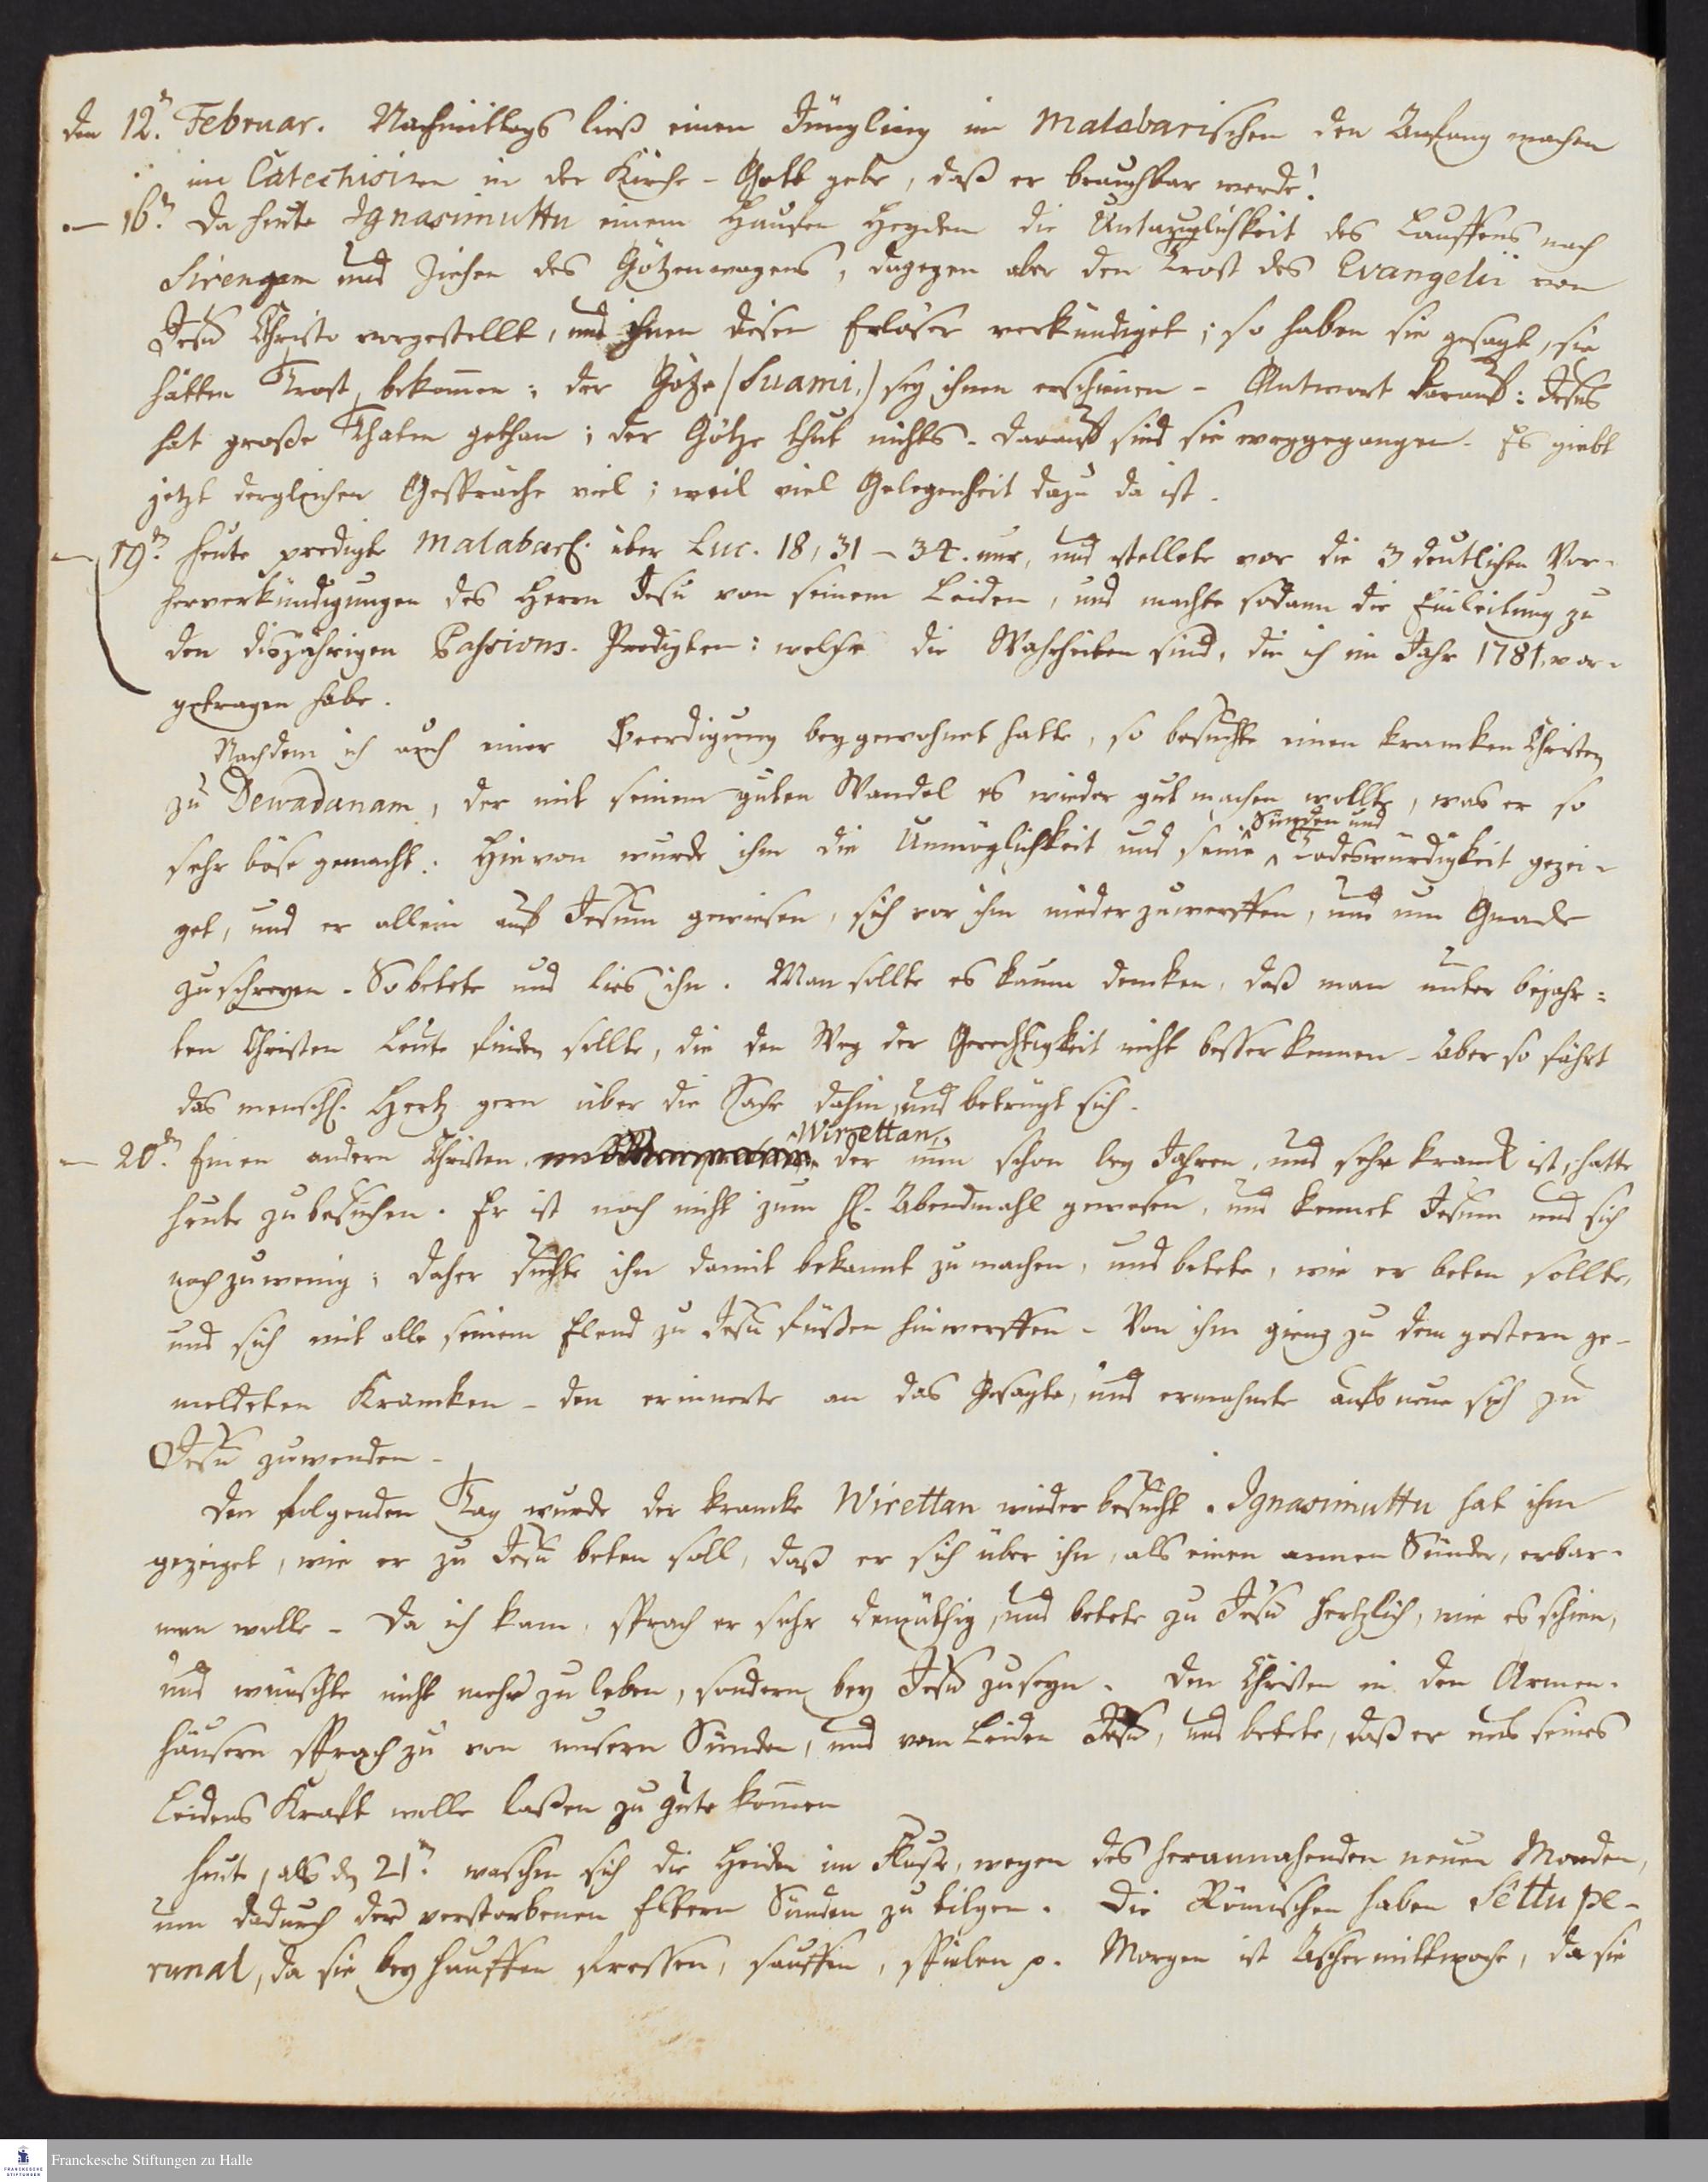 den 12.n Februar. Nachmittags ließ einen Jüngling im Malabarischen den Anfang machen
im Catechisiren in der Kirche - Gott gebe, daß er brauchbar werde!
— 16.n Da heute Ignasimuttu einem Haufen Heyden die Untauglichkeit des Lauffens nach
Sirengam und Ziehen des Götzenwagens, dagegen aber den Trost des Evangelii von
Jesu Christo vorgestellt, und ihnen diesen Erlöser verkündiget; so haben sie gesagt, sie
hätten Trost bekom̅en; der Götze (Suami,) sey ihnen erschienen - Antwort darauf: Jesus
hat große Thaten gethan; der Götze thut nichts. darauf sind sie weggegangen. Es giebt
jetzt dergleichen Gespräche viel; weil viel Gelegenheit dazu da ist.
— 19.n heute predigte Malabarsch. über Luc. 18, 31 – 34. nur, und stellete vor die 3 deutlichen Vor-
herverkündigungen des Herrn Jesu von seinem Leiden, und machte sodann die Einleitung zu
den dißjährigen Passions-Predigten: welche die Wahrheiten sind, die ich im Jahr 1781, vor-
getragen habe.
Nachdem ich auch einer Beerdigung beygewohnet hatte, so besuchte einen krancken Christen
zu Dewadanam, der mit seinem guten Wandel es wieder gut machen wollte, was er so
Sünden und
sehr böse gemacht. Hievon wurde ihm die Unmöglichkeit und seine Todeswürdigkeit gezei-
get, und er allein auf Jesum gewiesen, sich vor ihm niederzuwerffen, und um Gnade
zu schreyen. So betete und lies ihn. Man sollte es kaum dencken, daß man unter bejahr-
ten Christen Leute finden sollte, die den Weg der Gerechtigkeit nicht besser kennen - Aber so fährt
das menschl. Hertz gern über die Sache dahin, und betrügt sich.
Wirettan,
— 20.n Einen andern Christen, der nun schon bey Jahren, und sehr kranck ist, hatte
heute zu besuchen. Er ist noch nicht zum H. Abendmahl gewesen, und kennet Jesum und sich
noch zu wenig; daher suchte ihn damit bekannt zu machen, und betete, wie er beten sollte,
und sich mit alle seinem Elend zu Jesu Füßen hinwerffen - Von ihm gieng zu dem gestern ge-
meldeten Krancken - den erinnerte an das Gesagte, und ermahnete aufs neue sich zu
Jesu zuwenden -
Den folgenden Tag wurde der krancke Wirettan wieder besucht. Ignasimuttu hat ihm
gezeiget, wie er zu Jesu beten soll, daß er sich über ihn, als einen armen Sünder, erbar-
men wolle - Da ich kam, sprach er sehr demüthig, und betete zu Jesu hertzlich, wie es schien,
und wünschte nicht mehr zu leben, sondern bey Jesu zu seyn. Den Christen in den Armen-
häusern sprach zu von unsern Sünden, und vom Leiden Jesu, und betete, daß er uns seines
Leidens Kraft wolle laßen zu gute kom̅en
Heute, als dn 21.n waschen sich die Heiden im Fluße, wegen des herannahenden neuen Monden,
um dadurch der verstorbenen Eltern Sünden zu tilgen. Die Römischen haben Settu pe-
runal, da sie bey Hauffen fressen, sauffen, spielen p. Morgen ist Aschermittwoche, da sie
Franckesche Stiftungen zu Halle
FRANCKESCHE
STIFTUNGEN